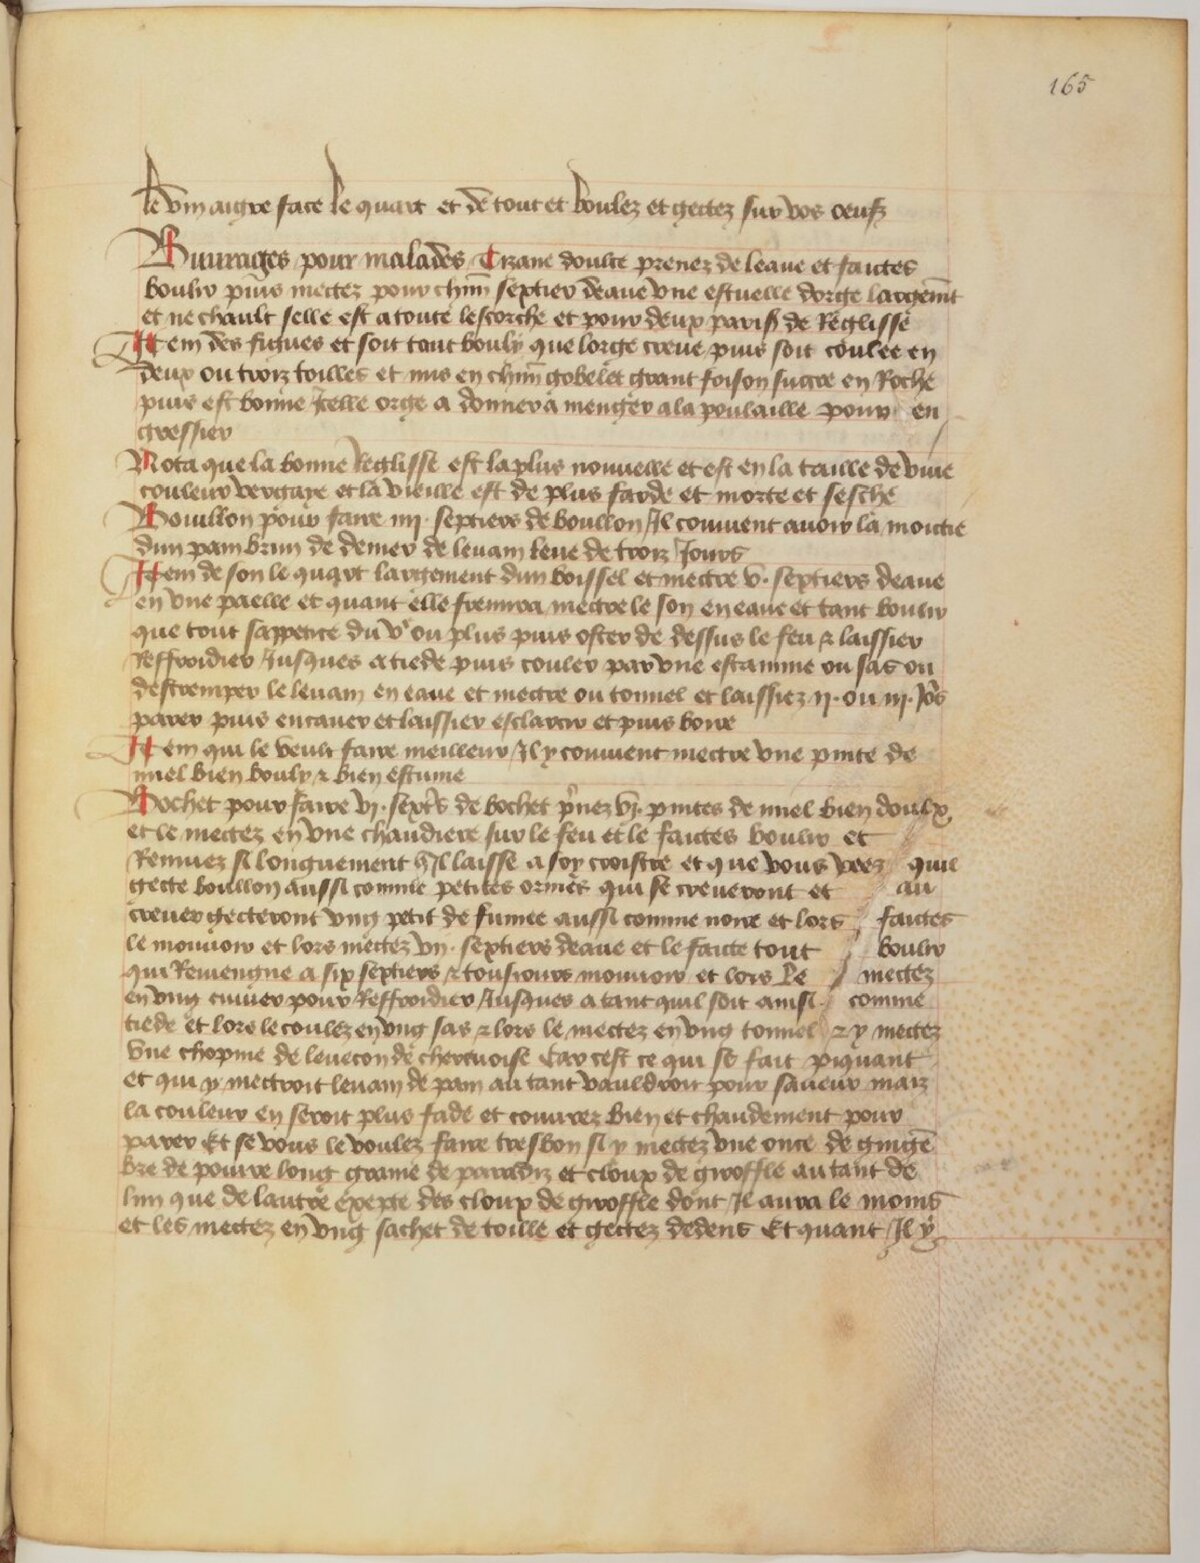 165
le vin aigre face le quart et de tout et boulez et gectez sur vos oeufz
Buurages pour malades Tizane doulce prenez de leaue et faictes
boulir puis mectez pour chm̄ septier deaue vne escuelle dorge largem̄t
et ne chault selle est a toute lescorche et pour deux parisis de Reglisse
Item des figues et soit tant bouly que lorge creue puis soit coulee en
deux ou troiz toilles et mis en chm̄ gobelet grant foison succre en Roche
puis est bonne Icelle orge a donner a menger a la poulaille pour en
gressier
Nota que la bonne Reglisse est la plus nouuelle et est en la taille de viue
couleur vergaye et la vieille est de plus fade et morte et sesche
Bouillon pour faire iiij. septiers de boullon Il conuient auoir la moictie
dun pain brun de denier de leuain leue de troiz Jours
Item de son le quart largement dun boissel et mectre v. septiers deaue
en vne paelle et quant elle fremira mectre le son en eaue et tant boulir
que tout sappetice du vᵉ ou plus puis oster de dessus le feu & laissier
Reffroidier Jusques a tiede puis couler par vne estamine ou sas ou
destremper le leuain en eaue et mectre ou tonnel et laissiez ij. ou iij. Jo͛s
parer puis encauer et laissier esclarcir et puis boire
Item qui le veult faire meilleur Il y conuient mectre vne pinte de
miel bien bouly & bien escume
Bochet pour faire vj. sext͛s de bochet p͛nez vj. pintes de miel bien doulx
et le mectez en vne chaudiere sur le feu et le faictes boulir et
Remuez si longuement q̄ Il laisse a soy croistre et que vous veez quil
gecte boullon aussi comme petites ormes qui se creueront et au
creuer gecteront vng petit de fumee aussi comme noire et lors faictes
le mouuoir et lors mectez vij. septiers deaue et le faicte tout boulir
qui Remengne a six septiers & tousiours mouuoir et lors le mectez
en vng cuuier pour Reffroidier Jusques a tant quil soit ainsi comme
tiede et lors le coulez en vng sas & lors le mectez en vng tonnel & y mectez
vne chopine de leuecon de cheruoise Car cest ce qui se fait piquant
et qui y mectroit leuain de pain autant vauldroit pour saueur maiz
la couleur en seroit plus fade et couurez bien et chaudement pour
parer Et se vous le voulez faire tresbon si y mectez vne once de gingē
bre de poiure long graine de paradiz et cloux de giroffle autant de
lun que de lautre exepte des cloux de giroffle dont Il aura le moins
et les mectez en vng sachet de toille et gectez dedens Et quant Il y